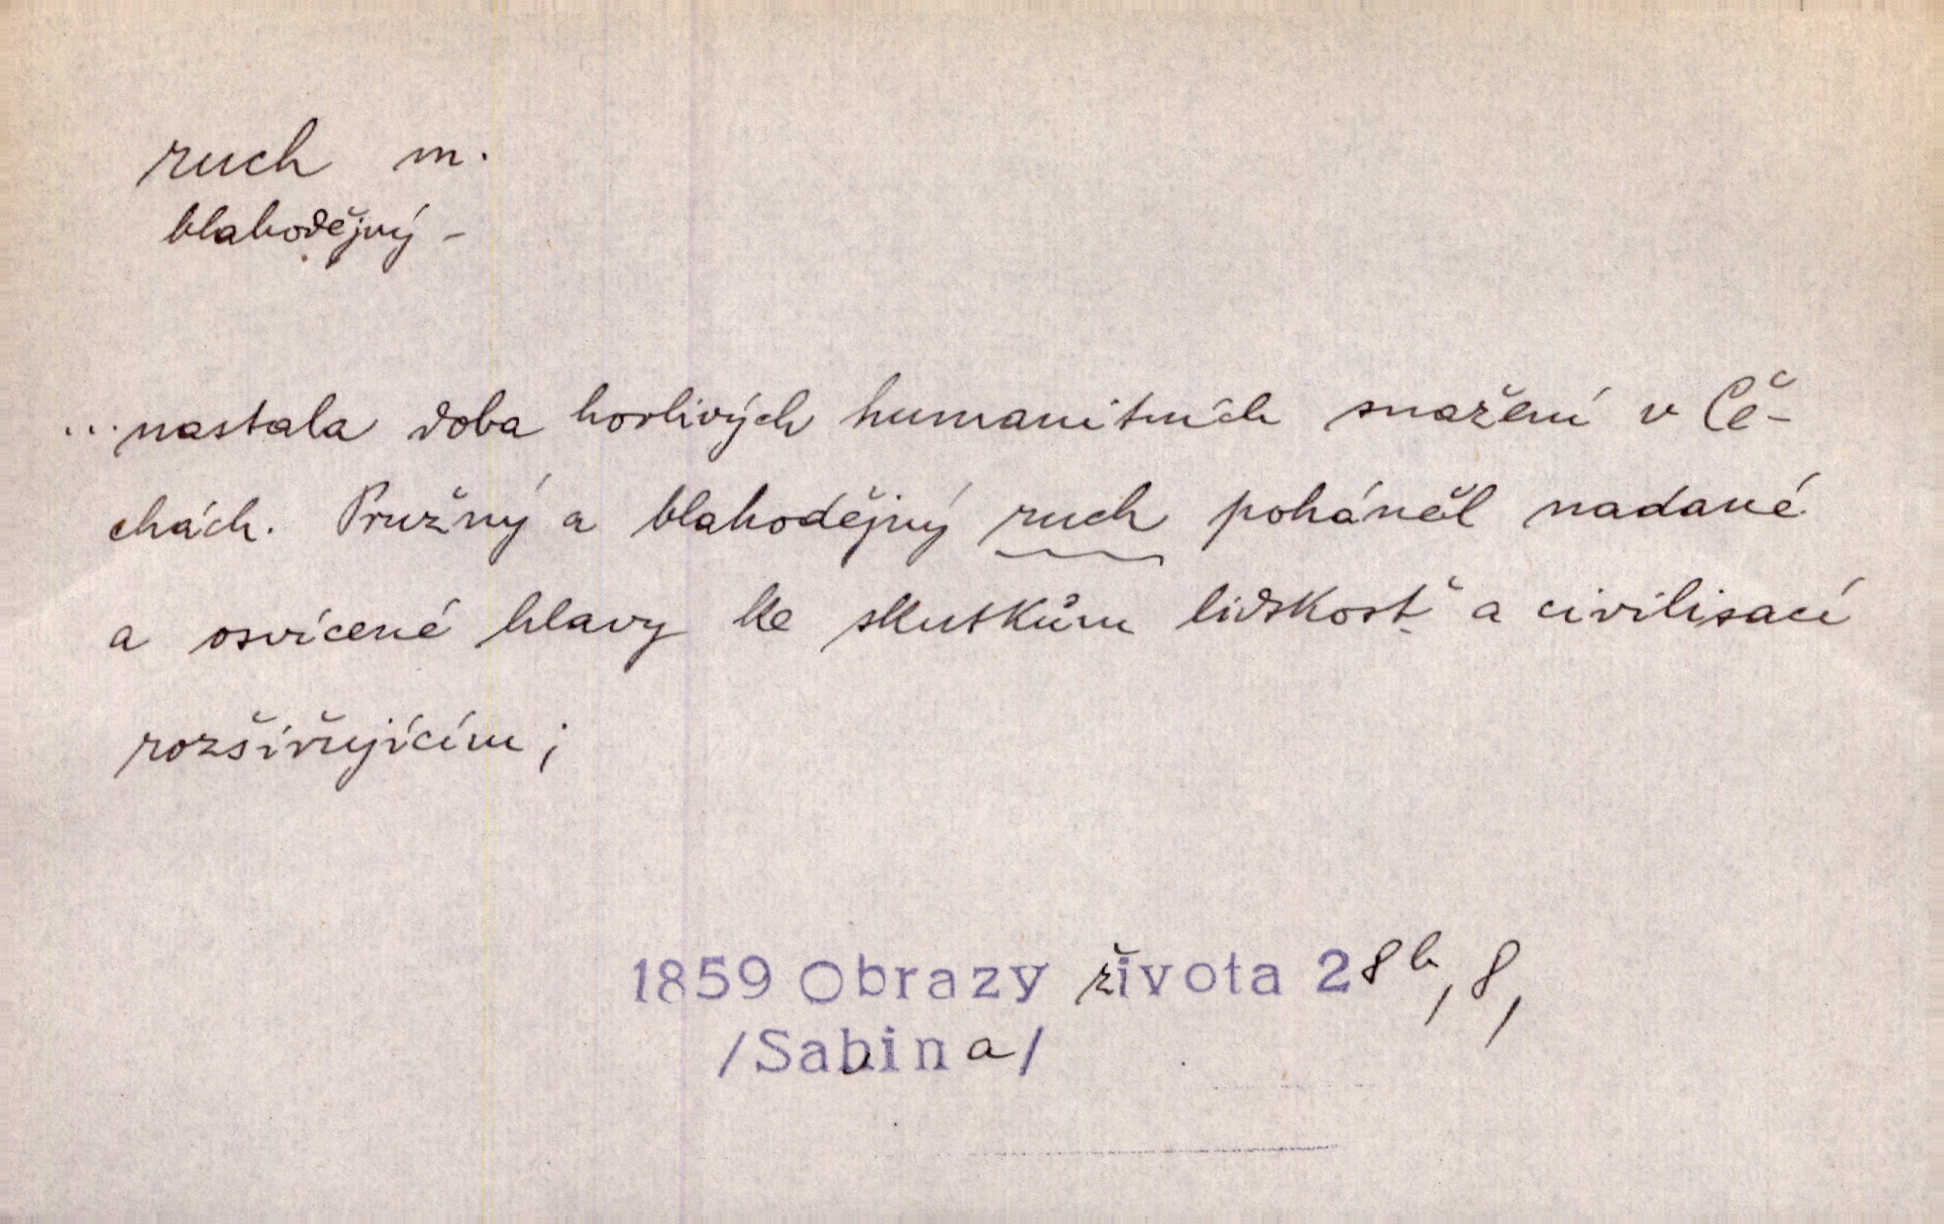 ruch m.
blahodějný -
...nastala doba horlivých humanitních snažení v Če-
chách. Pružný a blahodějný ruch poháněl nadané
a osvícené hlavy ke skutkům lidskosť a civilisací
rozšiřujícím;
1859 Obrazy života 28b, 8,
/Sabina/